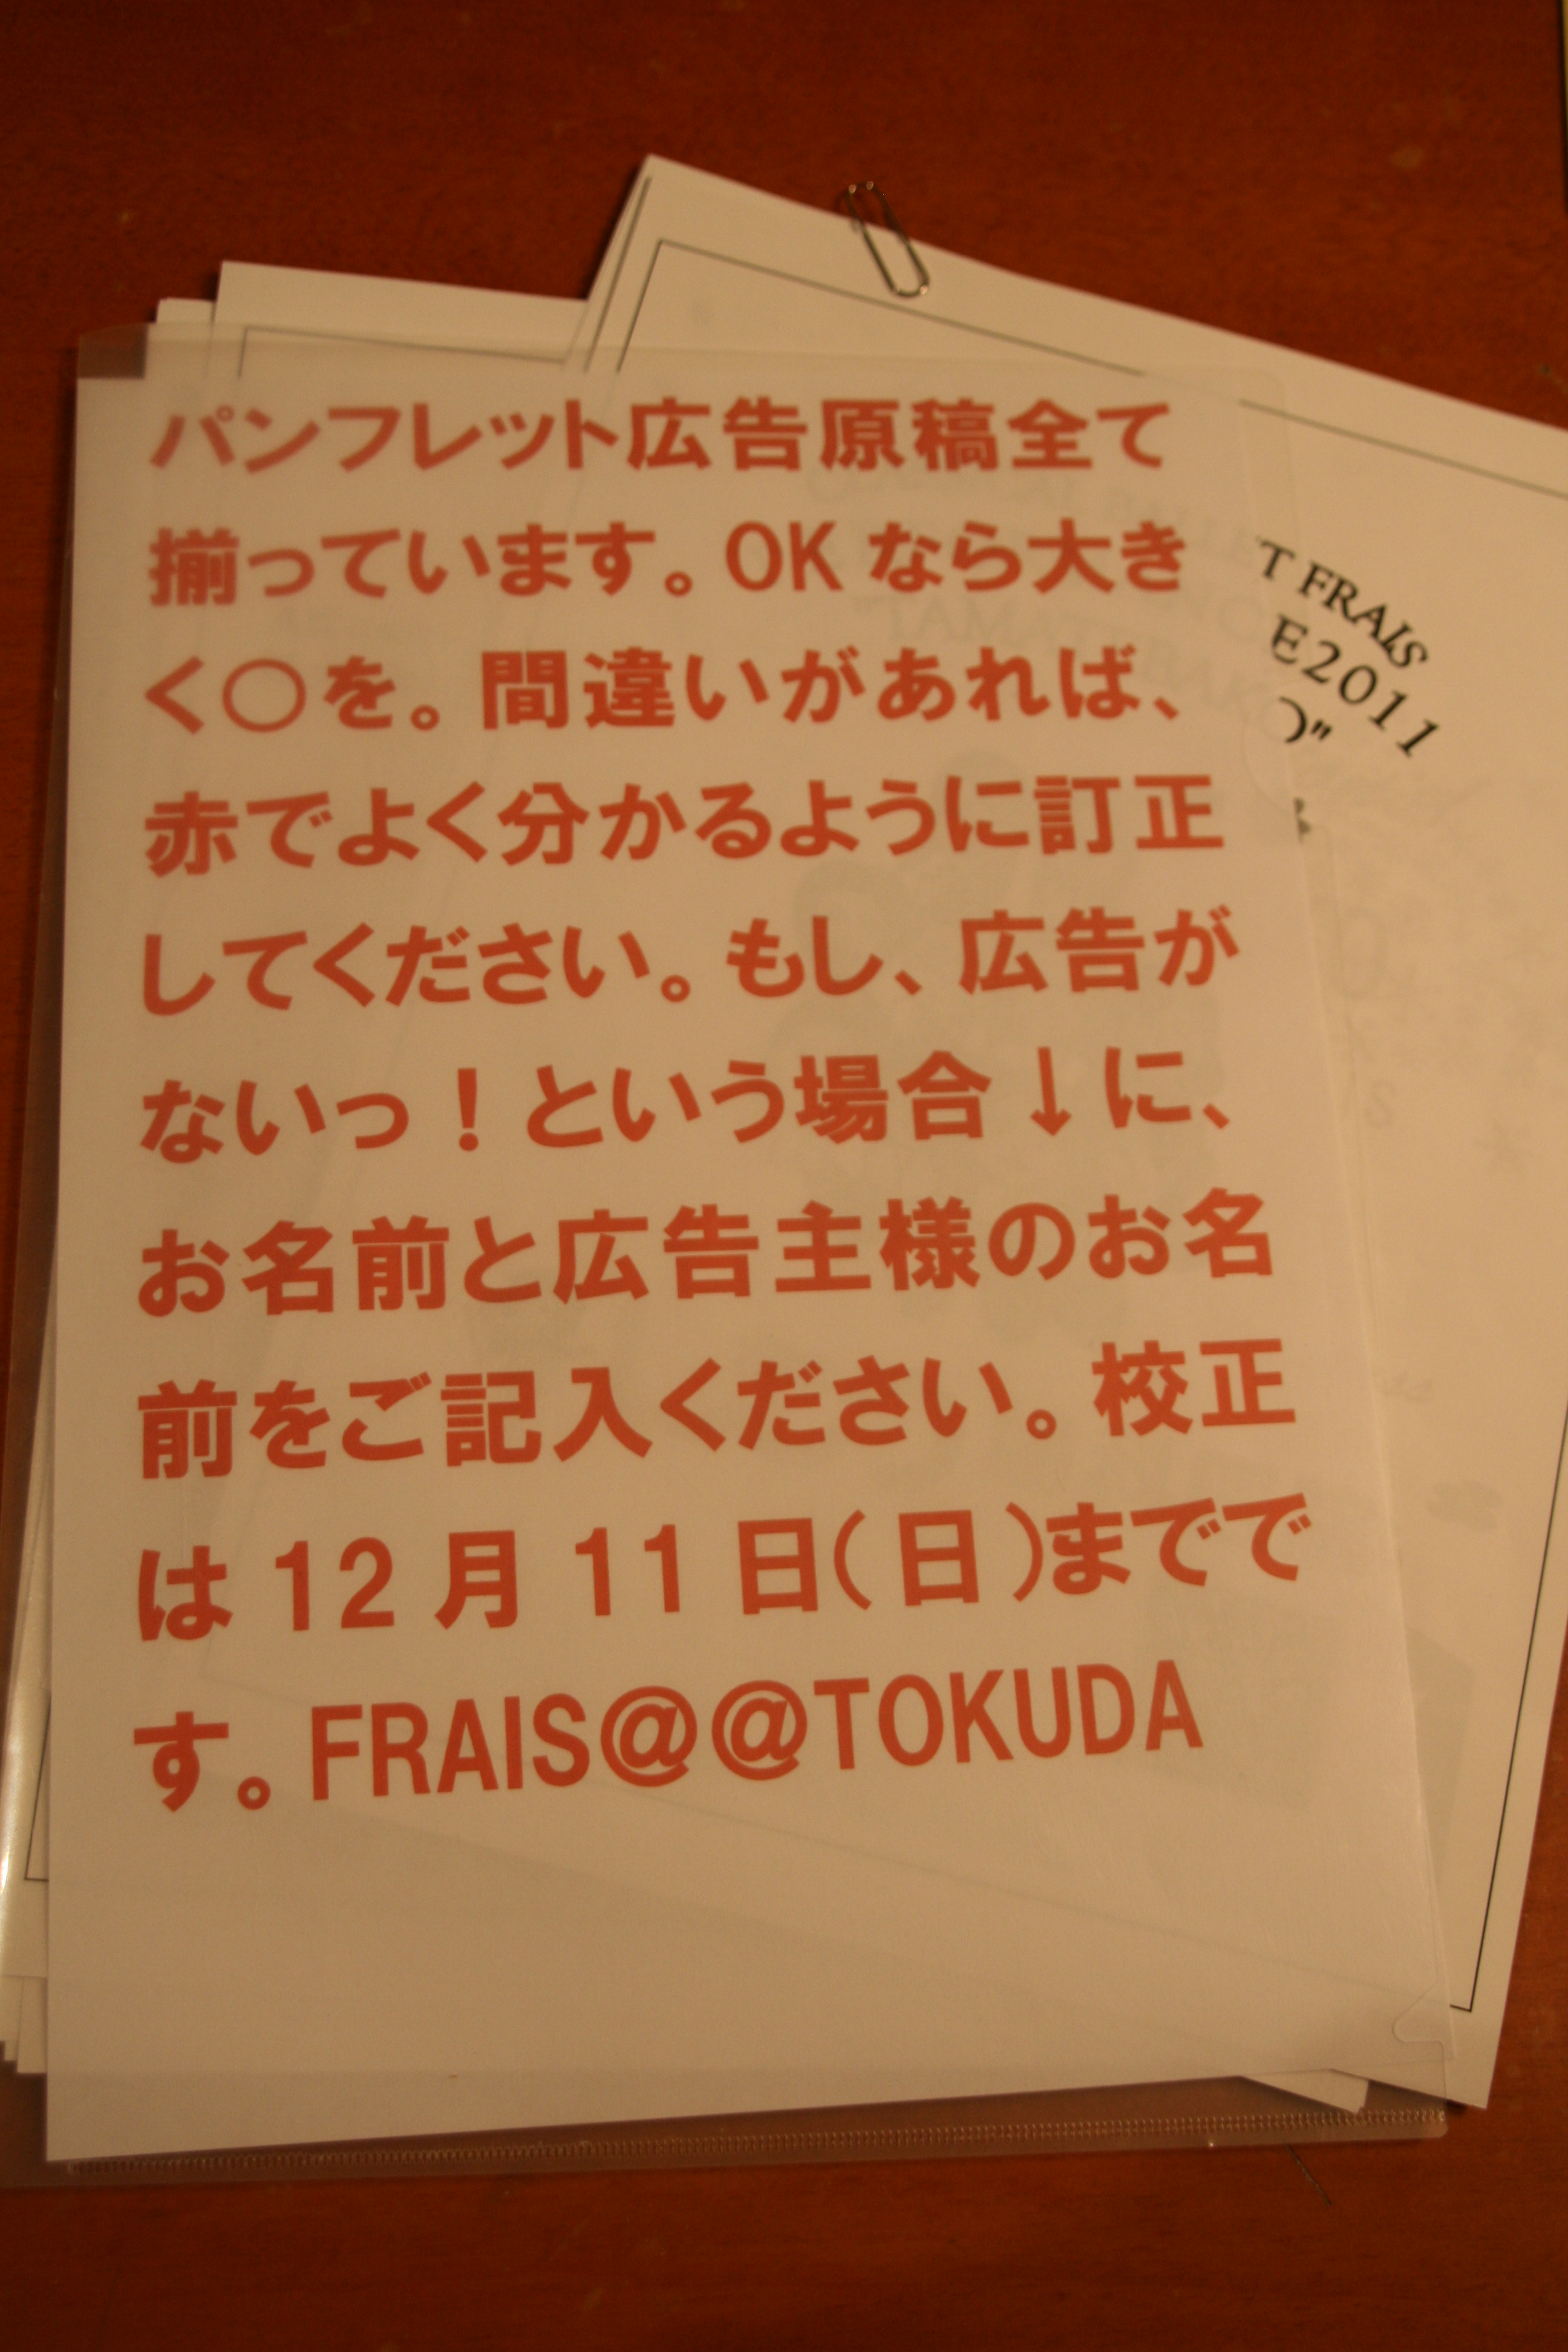 パンフレット広告原稿全て
揃っています。OKなら大き
く○を。間違いがあれば、
赤でよく分かるように訂正
してください。もし、広告が
ないっ！という場合↓に、
お名前と広告主様のお名
前をご記入ください。校正
は12月11日(日)までで
す。FRAIS@@TOKUDA
T FRAIS
E2011
O"